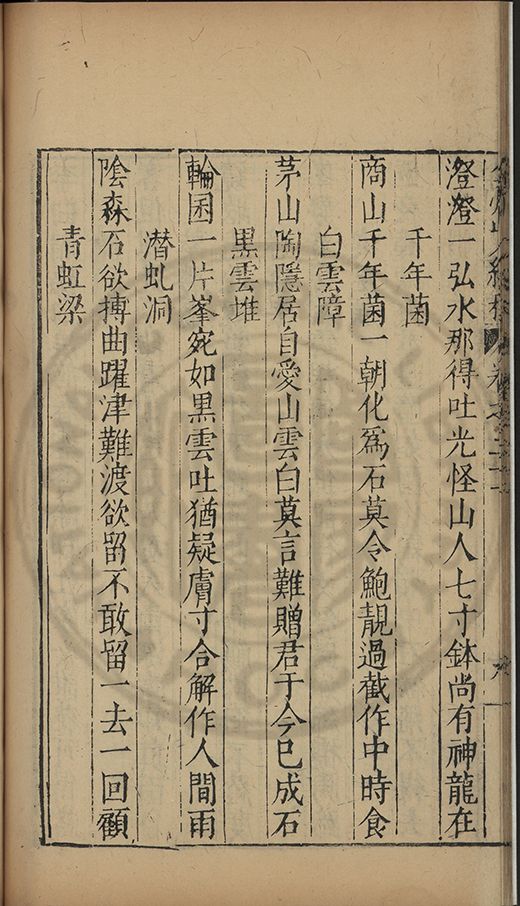 澄澄一弘水那得吐光怪山人七寸鉢尚有神龍在
千年菌
商山千年菌一朝化爲石莫令鮑靚過截作中時食
白雲障
茅山陶隱居自愛山雲白莫言難贈君于今已成石
黑雲堆
輪囷一片峯宛如黒雲吐猶疑膚寸合解作人間雨
潜虬洞
陰森石欲搏曲躍津難渡欲留不敢留一去一回顧
青虹梁